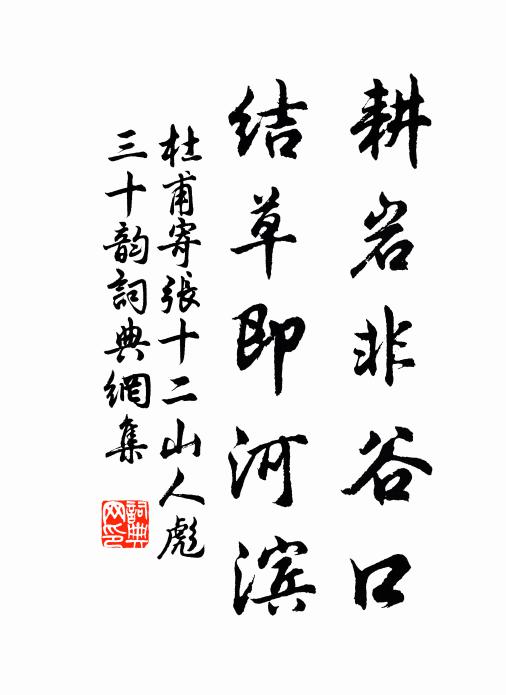 耕岩非谷口
结草即河滨
杜甫寄张十二山人彪
三十韵詞典網集
詞典网印